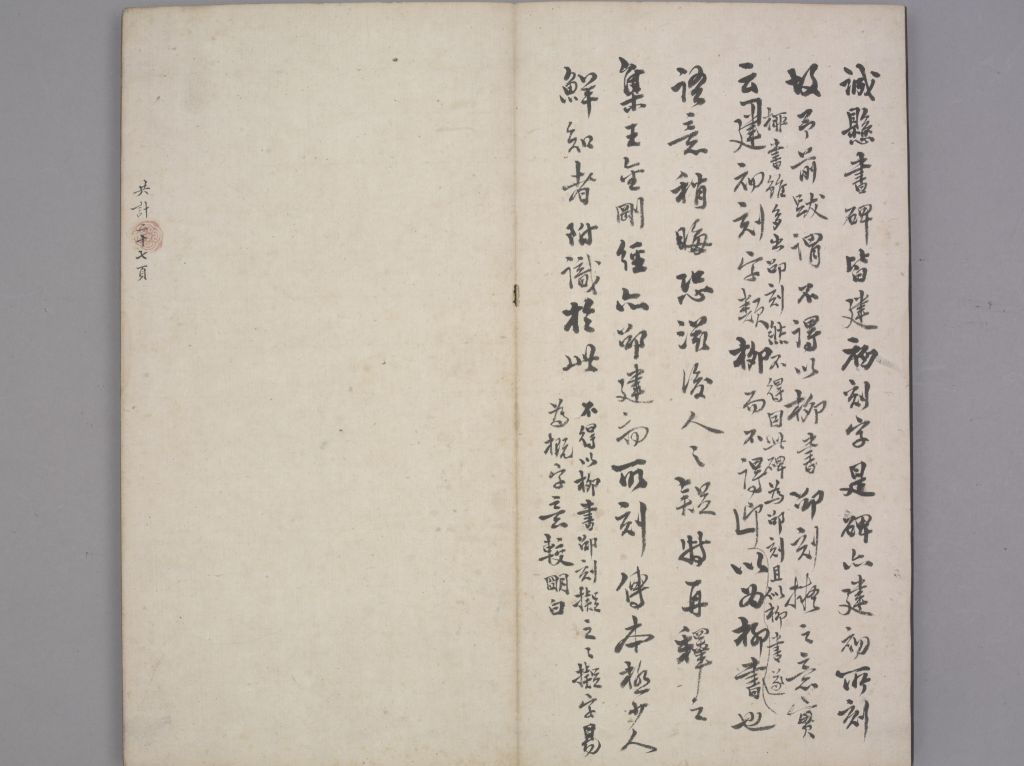 誠懸書碑皆建初刻字是碑亦建初所刻
故予前跋謂不得以柳書邵刻擬之意實
柳書雖多出邵刻然不得因此碑為邵刻且似柳書遂
云建初刻字類柳而不得即以為柳書也
語意稍晦恐滋後人之疑特再釋之
集王金剛經亦邵建初所刻傳本極少人
鮮知者附識於此
不得以柳書邵刻擬之之擬字易
為概字意較明白
共計二十七頁